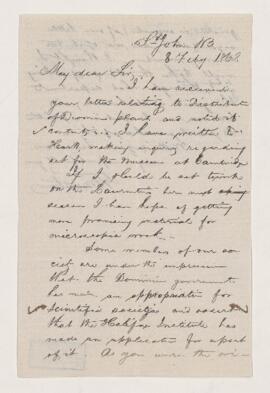 St John N.B.
8 Feby 186
My dear Sir,
I have received
your letter relating to Distribution
of plants and noted it
contents. I have written to
making inquiry regarding
for the Museum at Cambridge
If I should be at work
on the Laurentian here next spring
season I have hope of getting
more promising material for
microscopic work.
Some members of our so-
ciety are under the impression
that the Dominion government
has made an appropriation for
Scientific societies and
that the Halifax Institute has
made an application for a part
of it. As you were the